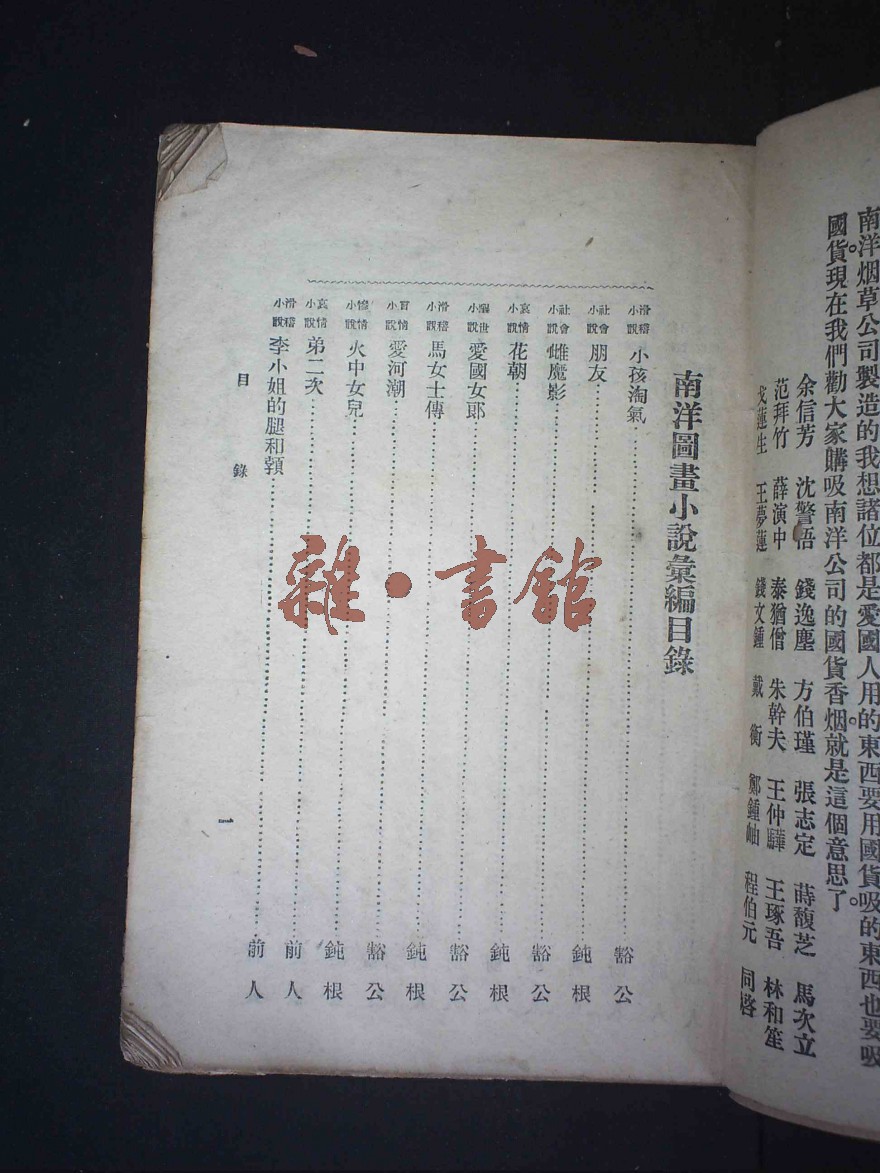 南洋烟草公司製造的我想諸位都是愛國人用的東西要用國貨吸的東西也要吸
國貨。現在我們勸大家購吸南洋公司的國貨香烟。就是這個意思了。
余信芳 沈警吾 錢逸塵 方伯瑾 張志定 蒔馥芝 馬次立
范拜竹 薛演中 秦猶僧 朱幹夫 王仲驊 王琢吾 林和笙
戈蓮生 王夢蓮 錢文鍾 戴衡 鄭鍾岫 程伯元 同啓
南洋圖畫小說彙編目錄
滑稽小說 小孩淘氣 豁公
社會小說 朋友 鈍根
社會小說 雌魔影 豁公
哀情小說 花朝 鈍根
小說 愛國女郎 豁公
滑稽小說 馬女士傳 鈍根
小說 愛河潮 豁公
慘情小說 火中女兒 鈍根
哀情小說 第二次 前人
滑稽小說 李小姐的腿和頸 前人
目錄
一
雜·書館